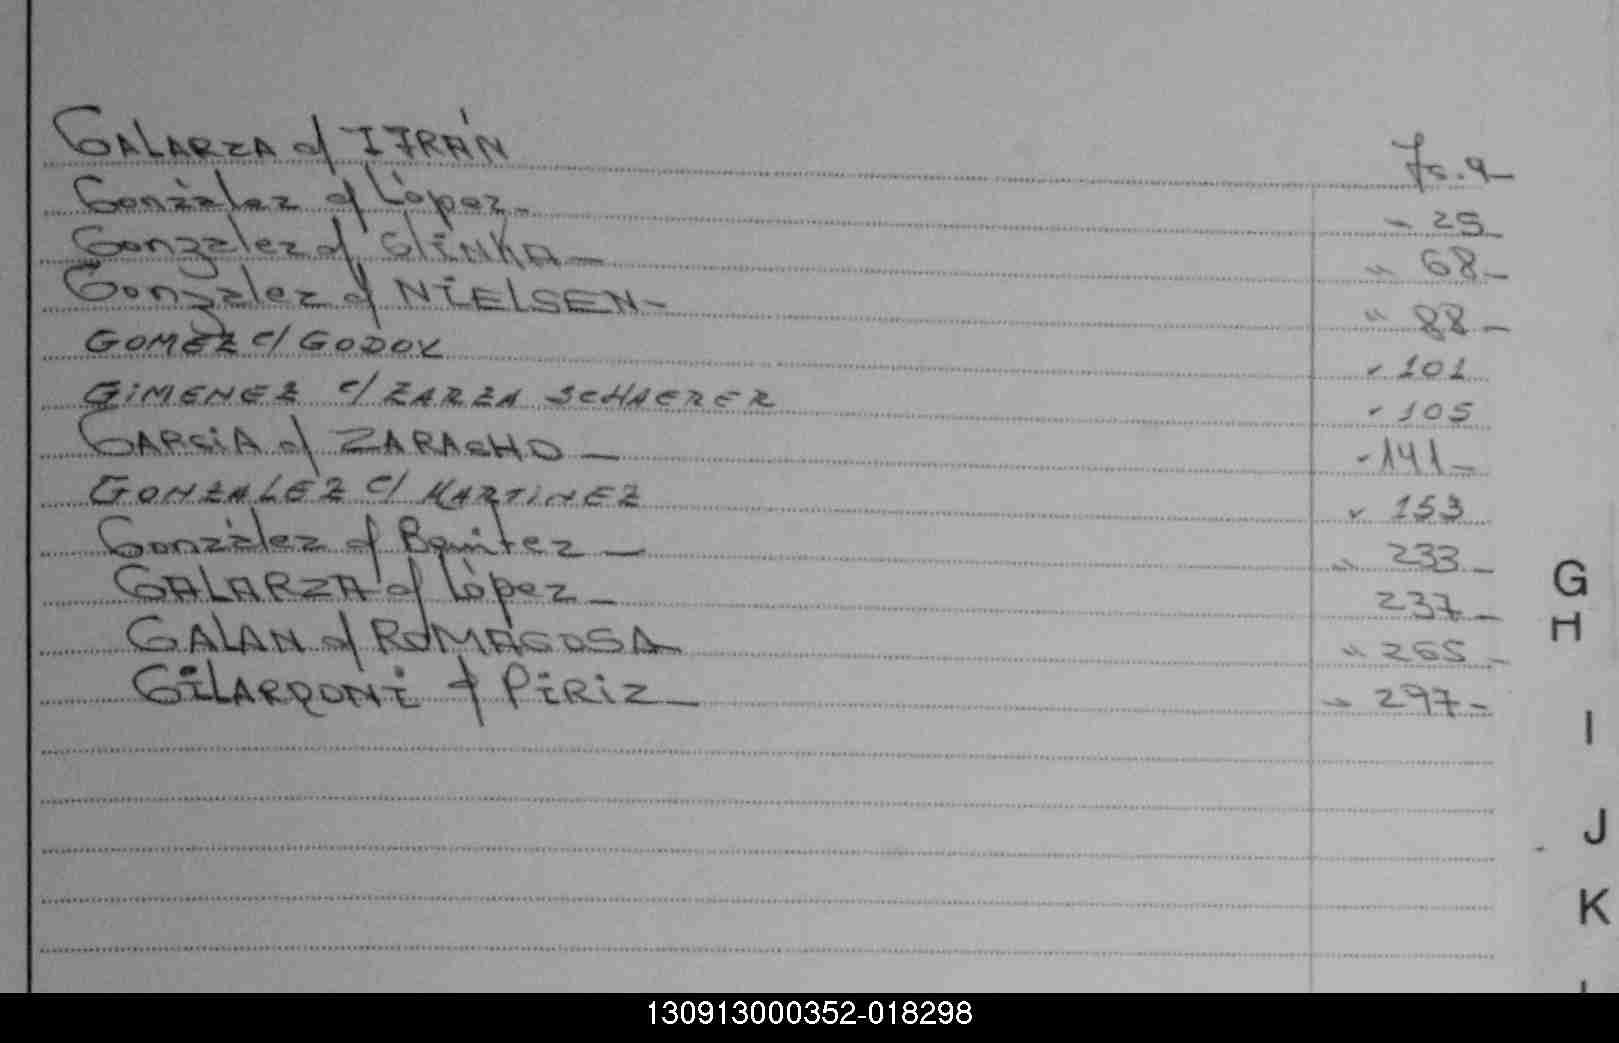 GALARZA c/ ITRÁN Fs. 9-
González c/ López- " 25-
González c/ GLINKA- " 68-
González c/ NIELSEN- " 88-
GOMEZ c/ GODOY " 101
GIMENEZ c/ ZARZA SCHAERER " 105
GARCIA c/ ZARACHO- " 141-
GONZALEZ c/ MARTINEZ " 153
González c/ Benitez- " 233-
GALARZA c/ López- 237-
GALAN c/ ROMAGOSA " 265-
GILARDONI c/ PIRIZ- " 297-
G
H
I
J
K
130913000352-018298